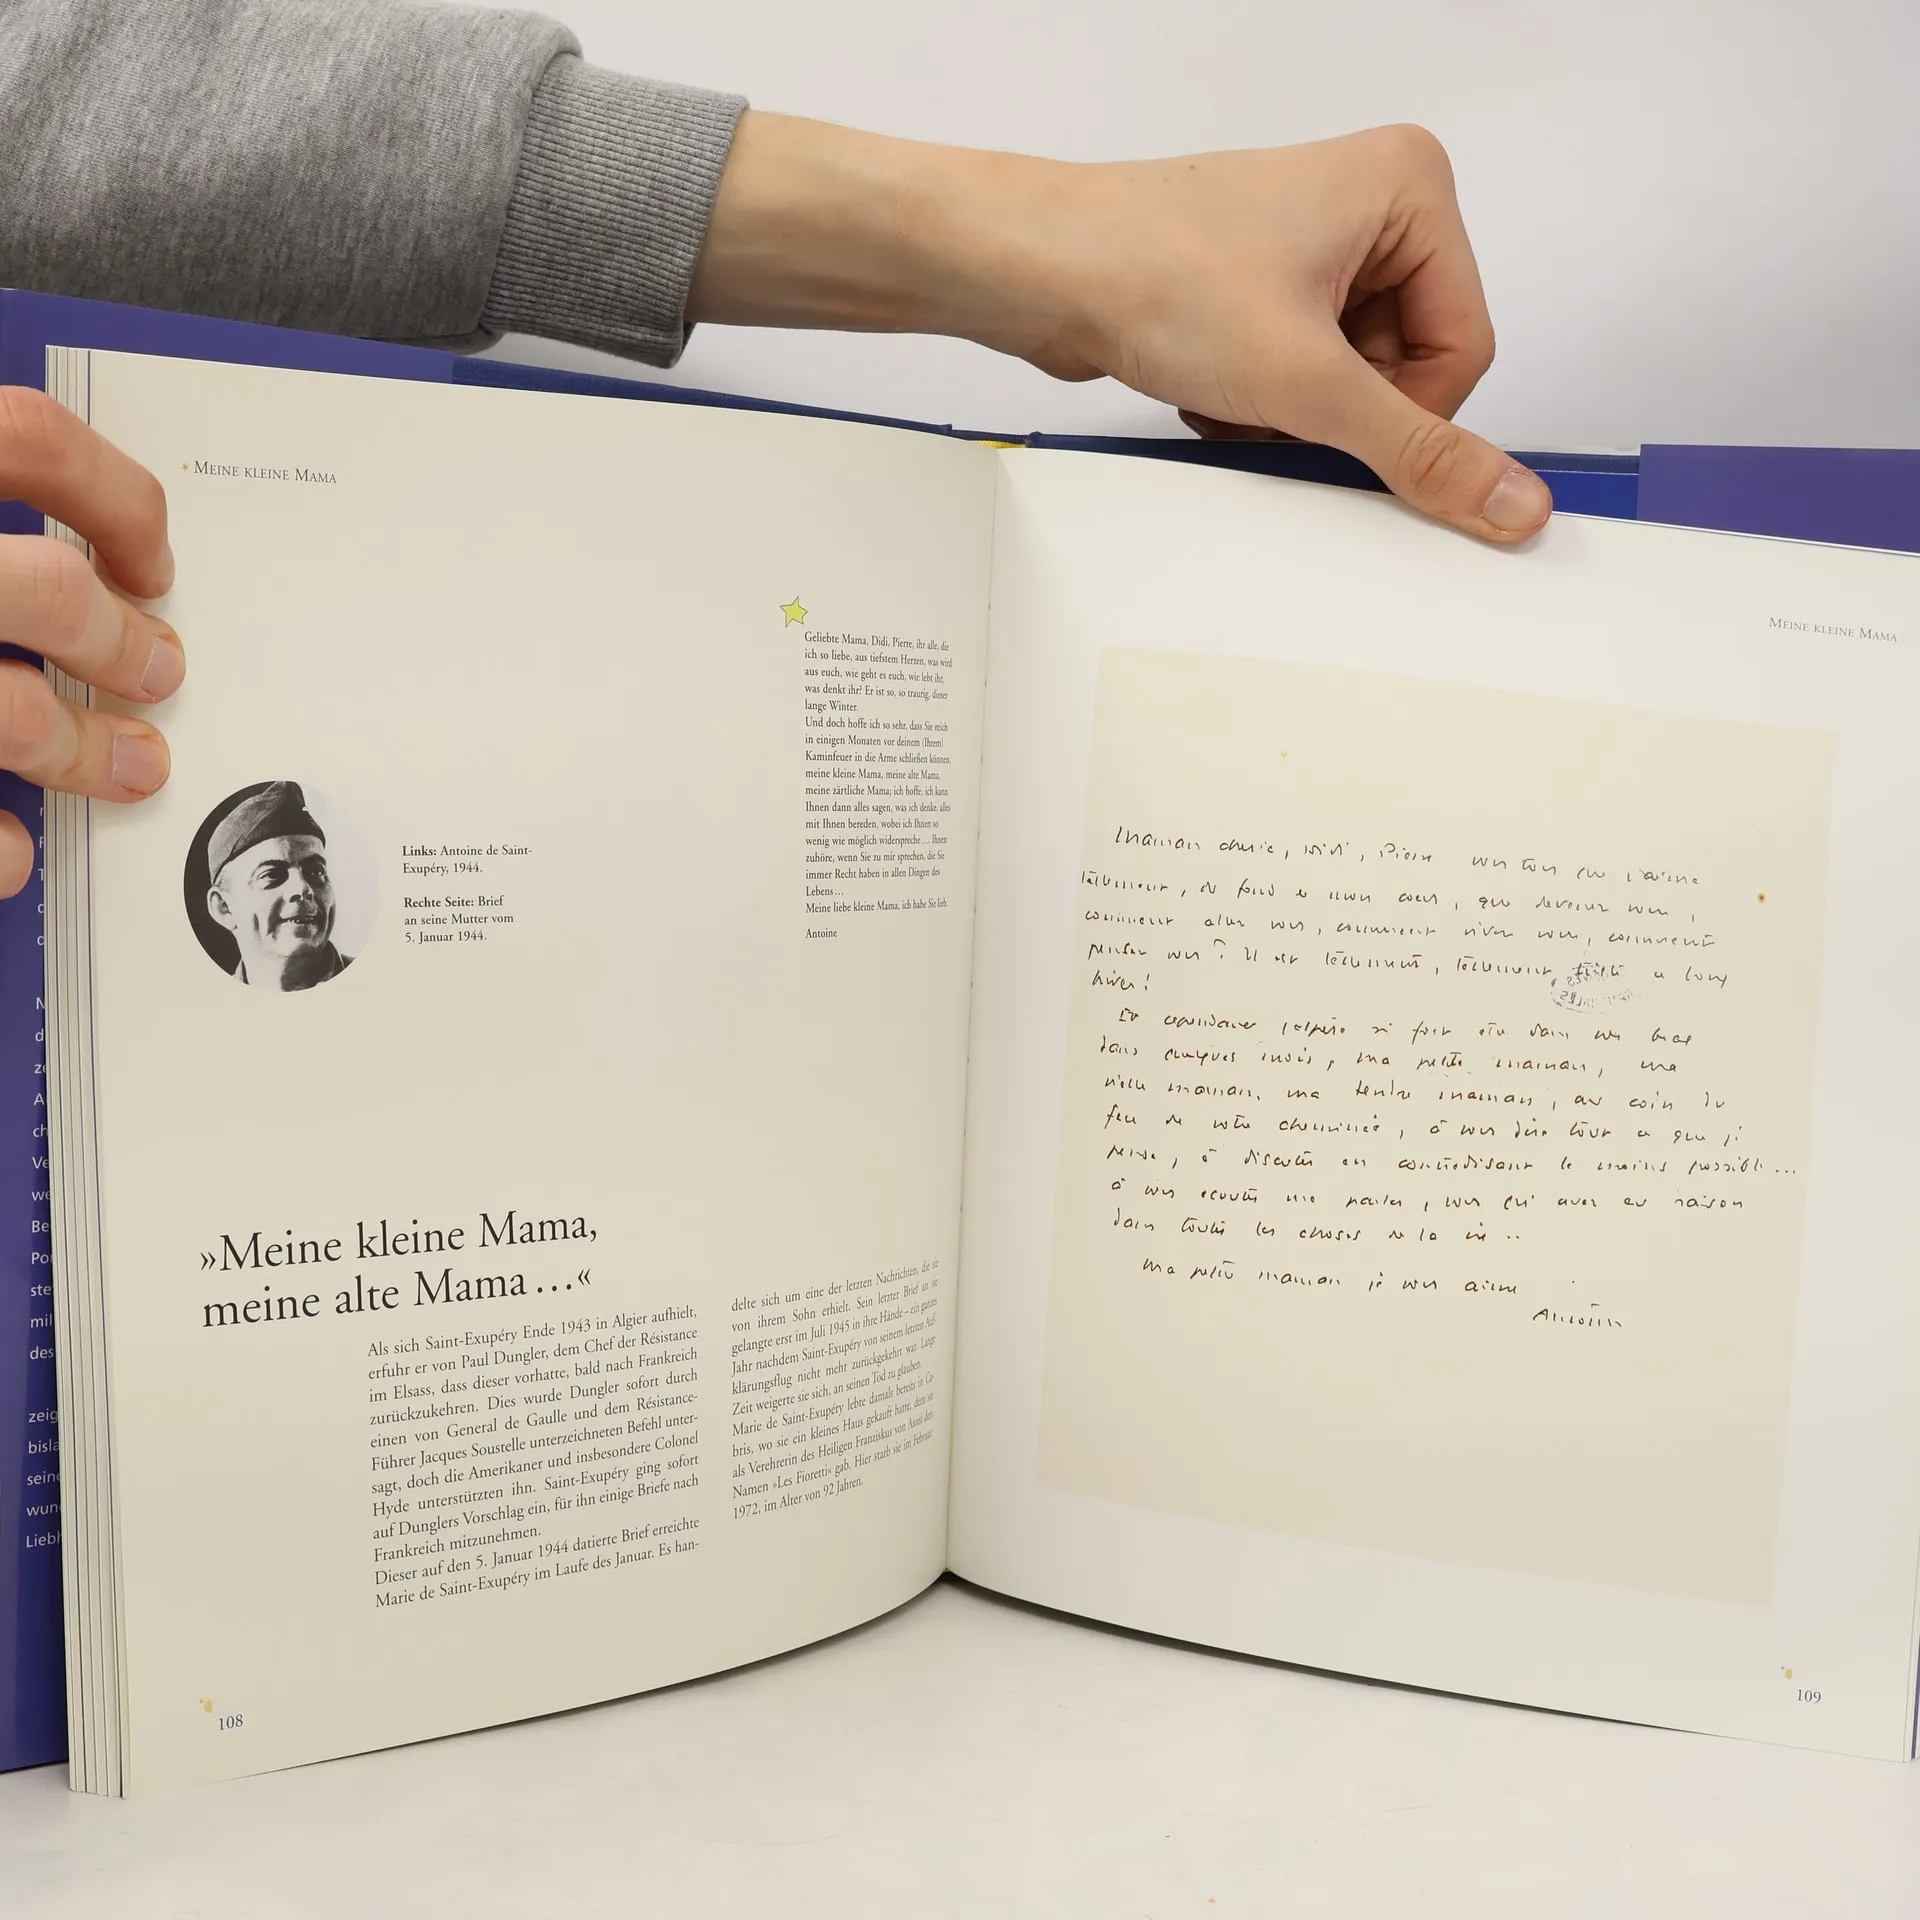 * MEINE KLEINE MAMA
Geliebte Mama, Didi, Pierre, ihr alle, die
ich so liebe, aus tiefstem Herzen, was wird
aus euch, wie geht es euch, wie lebt ihr,
was denkt ihr? Er ist so, so traurig, dieser
lange Winter.
Und doch hoffe ich so sehr, dass Sie mich
in einigen Monaten vor deinem (Ihrem)
Kaminfeuer in die Arme schließen können,
meine kleine Mama, meine alte Mama,
meine zärtliche Mama; ich hoffe, ich kann
Ihnen dann alles sagen, was ich denke, alles
mit Ihnen bereden, wobei ich Ihnen so
wenig wie möglich widerspreche… Ihnen
zuhöre, wenn Sie zu mir sprechen, die Sie
immer Recht haben in allen Dingen des
Lebens…
Meine liebe kleine Mama, ich habe Sie lieb.
Antoine
Links: Antoine de Saint-
Exupéry, 1944.
Rechte Seite: Brief
an seine Mutter vom
5. Januar 1944.
»Meine kleine Mama,
meine alte Mama…«
Als sich Saint-Exupéry Ende 1943 in Algier aufhielt,
erfuhr er von Paul Dungler, dem Chef der Résistance
im Elsass, dass dieser vorhatte, bald nach Frankreich
zurückzukehren. Dies wurde Dungler sofort durch
einen von General de Gaulle und dem Résistance-
Führer Jacques Soustelle unterzeichneten Befehl unter-
sagt, doch die Amerikaner und insbesondere Colonel
Hyde unterstützten ihn. Saint-Exupéry ging sofort
auf Dunglers Vorschlag ein, für ihn einige Briefe nach
Frankreich mitzunehmen.
Dieser auf den 5. Januar 1944 datierte Brief erreichte
Marie de Saint-Exupéry im Laufe des Januar. Es han-
delte sich um eine der letzten Nachrichten, die sie
von ihrem Sohn erhielt. Sein letzter Brief an sie
gelangte erst im Juli 1945 in ihre Hände – ein ganzes
Jahr nachdem Saint-Exupéry von seinem letzten Auf-
klärungsflug nicht mehr zurückgekehrt war. Lange
Zeit weigerte sie sich, an seinen Tod zu glauben.
Marie de Saint-Exupéry lebte damals bereits in Ca-
bris, wo sie ein kleines Haus gekauft hatte, dem sie
als Verehrerin des Heiligen Franziskus von Assisi den
Namen »Les Fioretti« gab. Hier starb sie im Februar
1972, im Alter von 92 Jahren.
108
MEINE KLEINE MAMA
Maman cherie, Didi, Pierre vous tous que j'aime
tellement, du fond de mon coeur, que devenez vous,
comment allez vous, comment vivez vous, comment
pensez vous? Il est tellement, tellement triste ce long
hiver!
Et cependant j'espère si fort être dans vos bras
dans quelques mois, ma petite maman, ma
vieille maman, ma tendre maman, au coin du
feu de votre cheminée, à vous dire tout ce que je
pense, à discuter en contredisant le moins possible...
à vous écouter me parler, vous qui avez eu raison
dans toutes les choses de la vie..
Ma petite maman je vous aime
Antoine
109